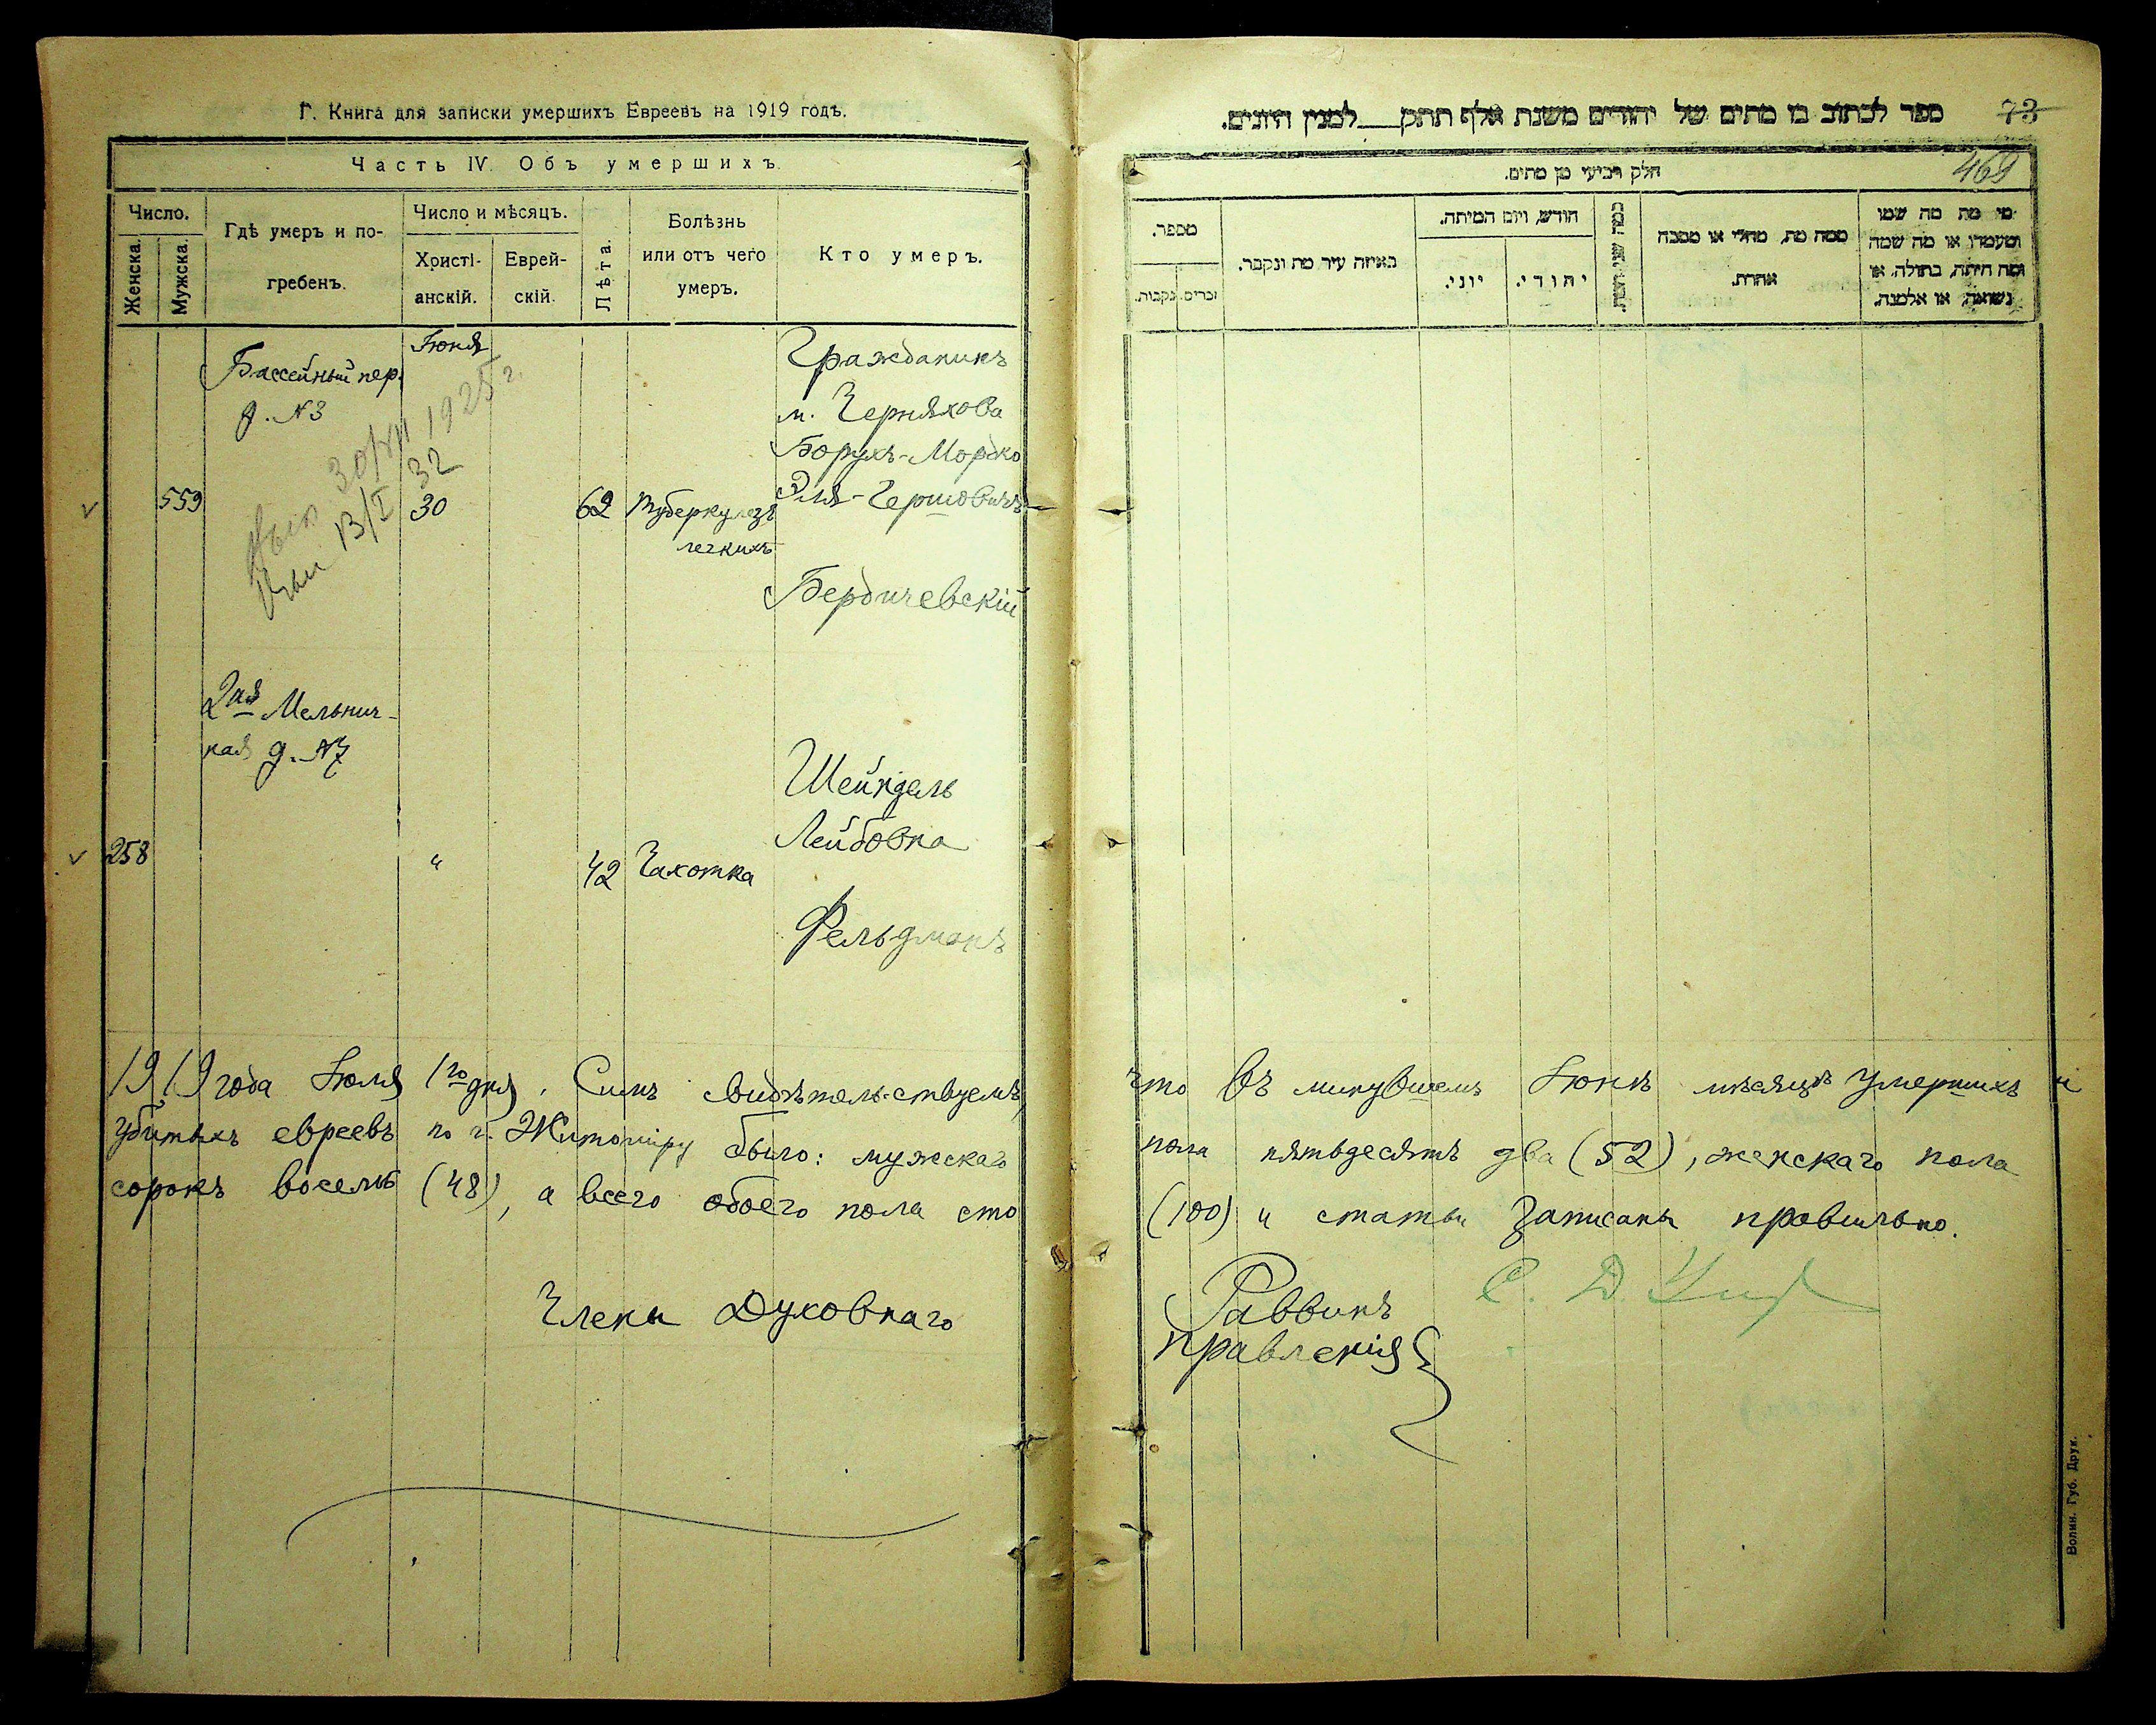 Г. Книга для записки умершихъ Евреевъ на 1919 годъ.
Часть IV. Объ умершихъ.
Число.
Женска.
Мужска.
Гдѣ умеръ и по-
гребенъ.
Число и мѣсяцъ.
Христі-
анскій.
Еврей-
скій.
Лѣта.
Болѣзнь
или отъ чего
умеръ.
Кто умеръ.
559
Бассейный пер.
д. №3
Июня
30
62
Туберкулезъ
легкихъ
Гражданинъ
м. Черняхова
Борухъ-Мордко
Эля-Гершовичъ
Бердичевскій
30/VII 1925 г.
13/I 32
258
2ая Мельнич-
ная д. №7
"
42
Чахотка
Шейндель
Лейбовна
Фельдманъ
1919 года Июля 1го дня. Симъ свидѣтельствуемъ,
убитыхъ евреевъ по г. Житомиру было: мужскаго
сорокъ восемь (48), а всего обоего пола сто
Члены Духовнаго
ספר לכתוב בו מתים של יהודים משנת אלף תתק למנין היונים.
73
469
חלק רביעי מן מתים.
מספר.
זכרים.
נקבות.
באיזה עיר מת ונקבר.
חודש, ויום המיתה.
יוני.
יהודי.
ממה מת, מחלי או מסבה
אחרת.
מי מת מה שמו
ומעמדו או מה שמה
ומה היתה, בתולה, או
נשואה, או אלמנה.
что въ минувшемъ Июнѣ мѣсяцѣ умершихъ и
пола пятьдесятъ два (52), женскаго пола
(100) и статьи записаны правильно.
Раввинъ
правленія
Волин. Губ. Друк.